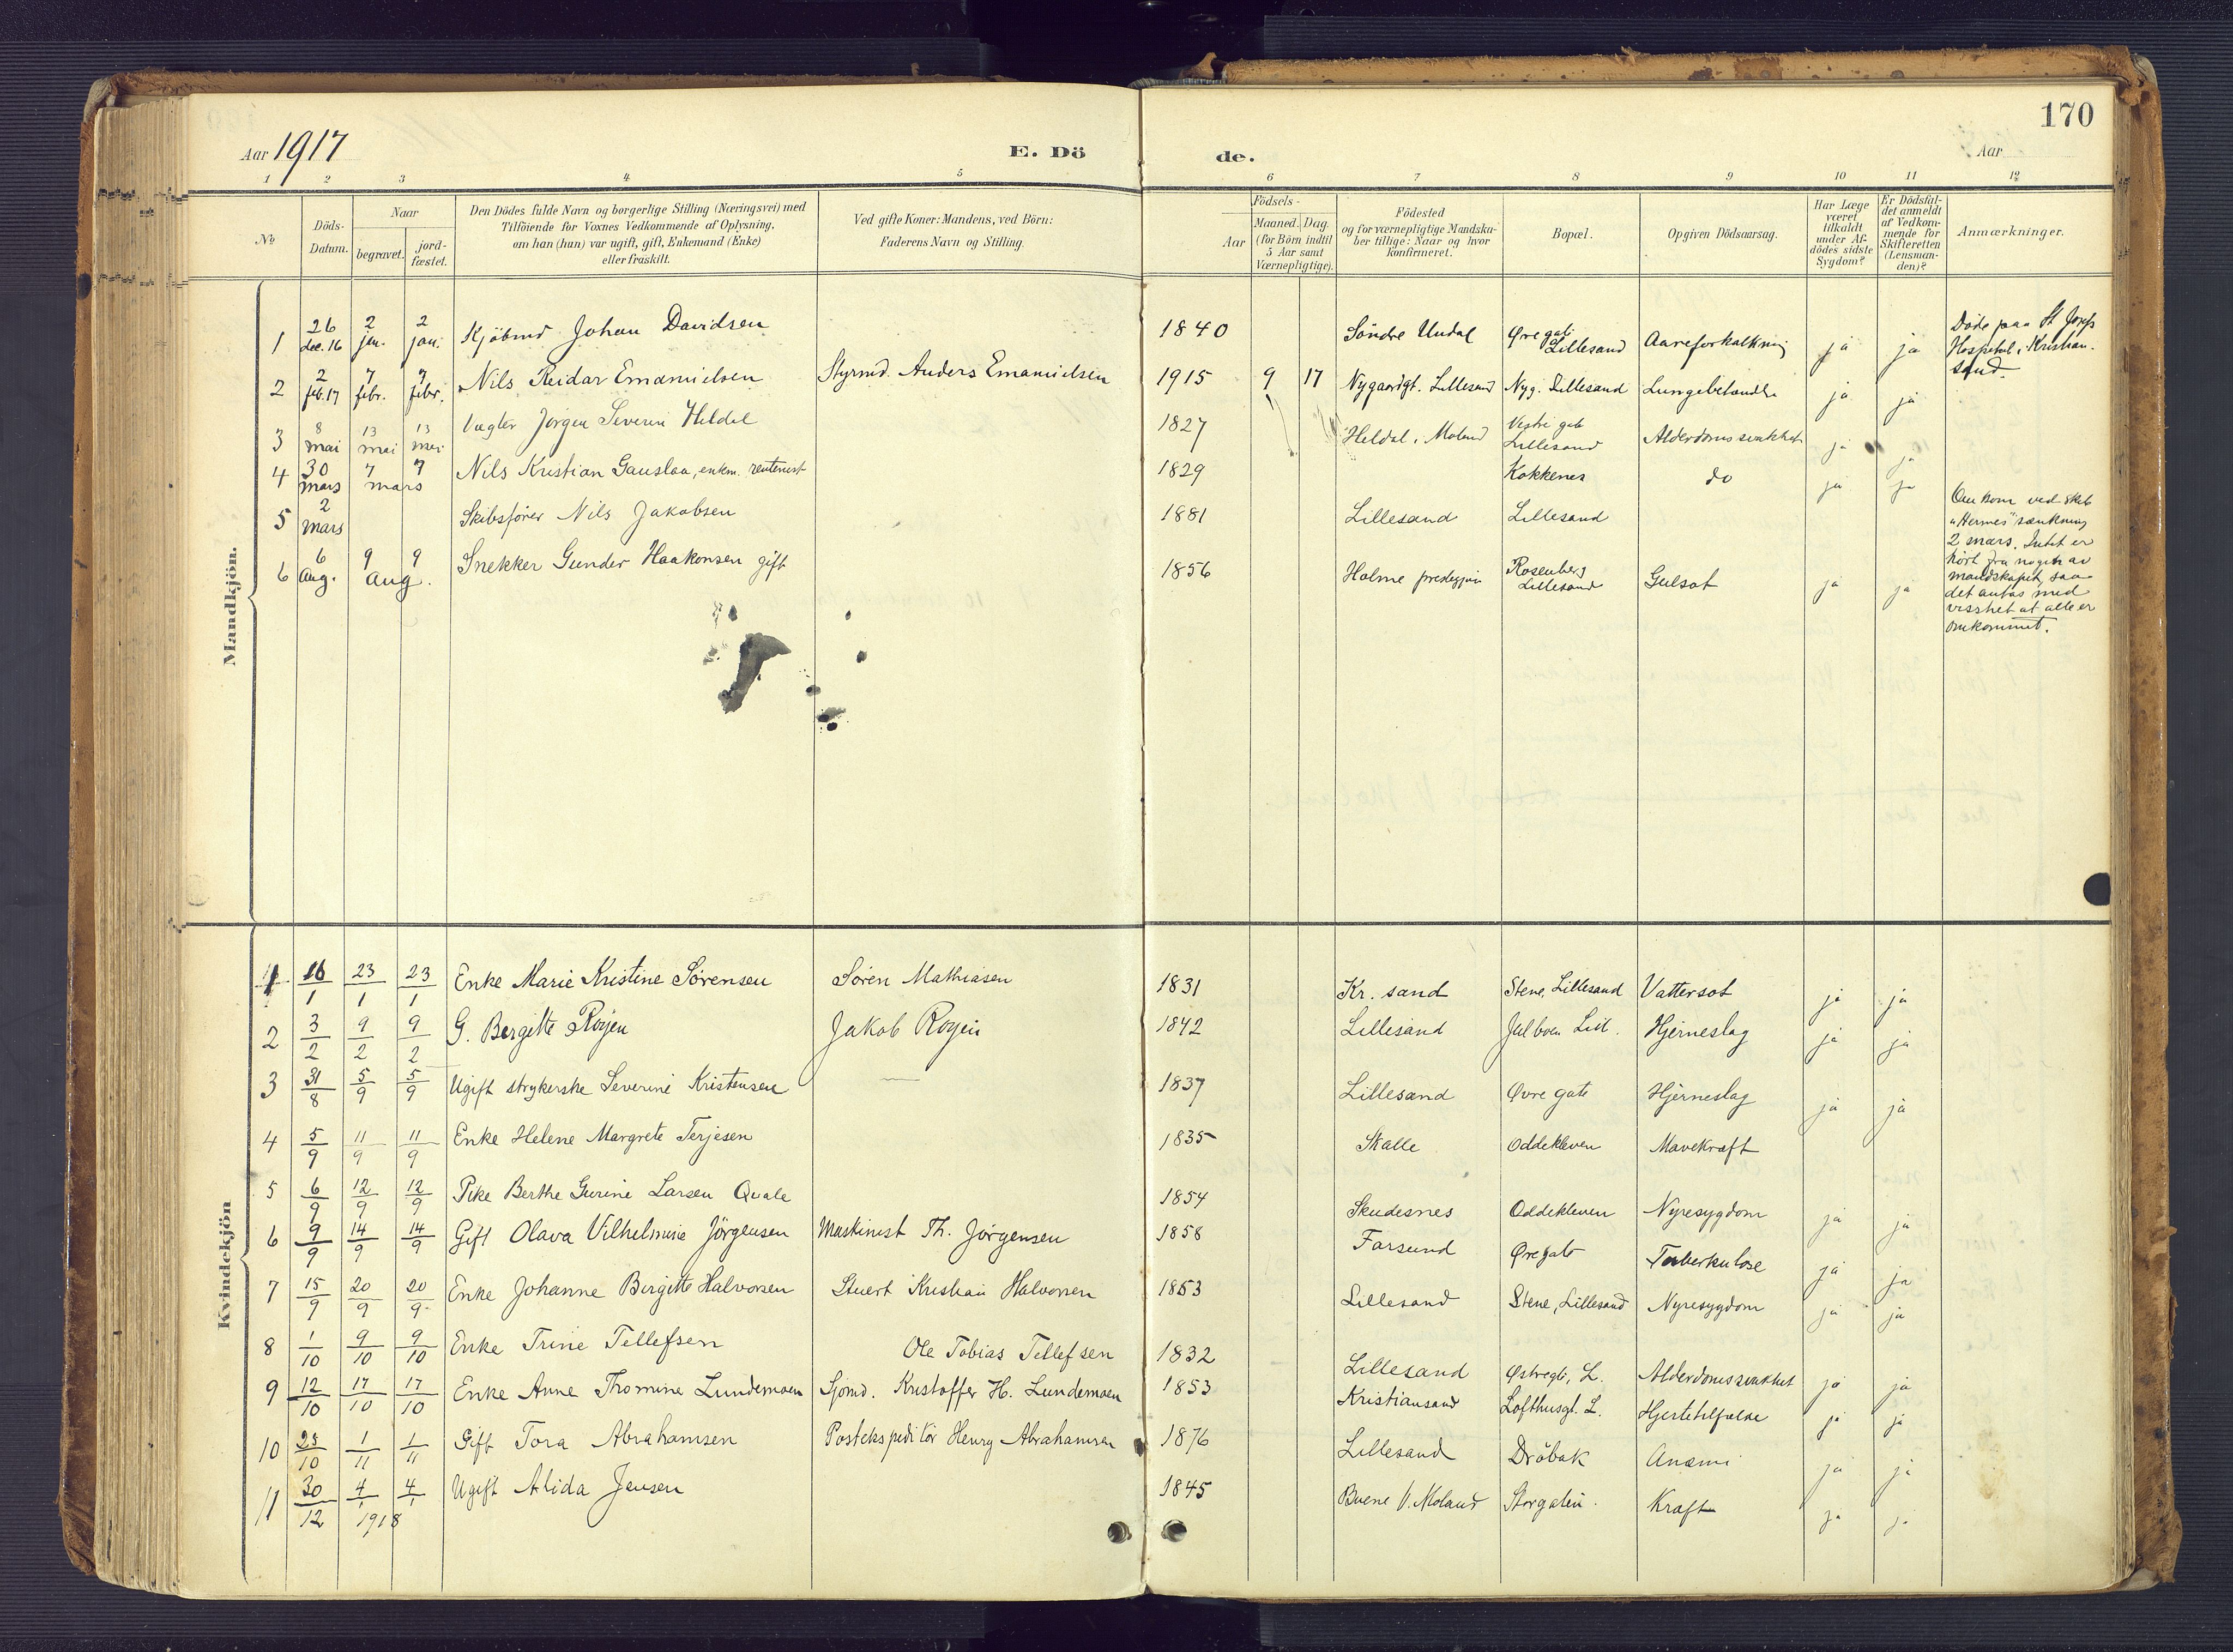 170
Aar 1917
E. Dö
de.
Aar
1 2 3 4 5 6 7 8 9 10 11 12
No
Döds-
Datum.
Naar
begravet.
jord-
fæstet.
Den Dödes fulde Navn og borgerlige Stilling (Næringsvei) med
Tilföiende for Voxnes Vedkommende af Oplysning,
om han (hun) var ugift, gift, Enkemand (Enke)
eller fraskilt.
Ved gifte Koner: Mandens, ved Börn:
Faderens Navn og Stilling.
Födsels-
Aar
Maaned. Dag.
(for Börn indtil
5 Aar samt
Værnepligtige).
Födested
og for værnepligtige Mandska-
ber tillige: Naar og hvor
konfirmeret.
Bopæl.
Opgiven Dödsaarsag.
Har Læge
været
tilkaldt
under Af-
dödes sidste
Sygdom?
Er Dödsfal-
det anmeldt
af Vedkom-
mende for
Skifteretten
(Lensman-
den)?
Anmærkninger.
Mandkjön.
1 26 dec. 16 2 jan. 2 jan. Kjöbmd Johan Davidsen 1840 Söndre Undal Øvre gate Lillesand Aareforkalkning ja ja Döde paa St Josefs
Hospital i Kristian-
sand.
2 2 feb. 17 7 febr. 7 febr. Nils Reidar Emanuelsen Styrmd. Anders Emanuelsen 1915 9 17 Nygaardgt. Lillesand Nyg. Lillesand Lungebetændelse ja ja
3 8 mai 13 mai 13 mai Vægter Jörgen Severin Heldal 1827 Heldal i Moland Vestre gate Lillesand Alderdomssvakhet ja ja
4 30 mars 7 7 mars Nils Kristian Gauslaa, enkm. rentenist 1829 Kokkenes do ja ja
5 2 mars Skibsförer Nils Jakobsen 1881 Lillesand Lillesand Omkom ved skib
"Hermes" sænkning
2 mars. Intet er
hört fra nogen av
mandskapet, saa
det antas med
visshet at alle er
omkommet.
6 6 Aug. 9 9 Aug. Snekker Gunder Haakonsen gift 1856 Holme prestegjeld Rosenberg Lillesand Gulsot ja ja
Kvindekjön
1 16/1 23/1 23/1 Enke Marie Kristine Sörensen Sören Mathiasen 1831 Kr. sand Stene, Lillesand Vattersot ja ja
2 3/2 9/2 9/2 G. Bergitte Røyen Jakob Røyen 1842 Lillesand Lill. Hjerneslag ja ja
3 31/8 5/9 5/9 Ugift strykerske Severine Kristensen — 1837 Lillesand Øvre gate Hjerneslag ja ja
4 5/9 11/9 11/9 Enke Helene Margrete Terjesen 1835 Skalle Oddekleven Mavekræft
5 6/9 12/9 12/9 Pike Berthe Gurine Larsen Qvale 1854 Skudesnes Oddekleven Nyresygdom ja ja
6 9/9 14/9 14/9 Gift Olava Vilhelmine Jörgensen Maskinist Th. Jörgensen 1858 Farsund Øvregate Tuberkulose ja ja
7 15/9 20/9 20/9 Enke Johanne Birgitte Halvorsen Stuert Kristian Halvorsen 1853 Lillesand Stene, Lillesand Nyresygdom ja ja
8 1/10 9/10 9/10 Enke Trine Tellefsen Ole Tobias Tellefsen 1832 Lillesand Østregt, L. Alderdomssvakhet ja ja
9 12/10 17/10 17/10 Enke Anne Thomine Lundemoen Sjömd. Kristoffer H. Lundemoen 1853 Kristiansand Lofthusgt. L. Hjertetilfælde ja ja
10 25/10 1/11 1/11 Gift Tora Abrahamsen Postekspeditör Henry Abrahamsen 1876 Lillesand Dröbak Anæmi ja ja
11 30/12 4/1 4/1 1918 Ugift Alida Jensen 1845 Buene V. Moland Storgaten. Kræft ja ja